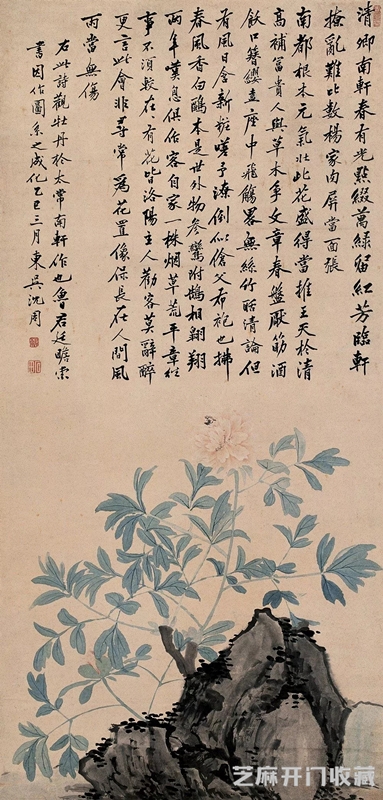 清卿南軒春有光點綴萬綠留紅芳臨軒
撩亂難比數楊家肉屏當面張
南都根本元氣壯此花盛得當推王天於清
高補富貴人與草木爭文章春盤厭筋酒
飲口簪纓盍座中飛觴畧無絲竹聒清論但
有風日含新粧嗟予潦倒似傖父希
春風香白鷗本是世外物參鸞附鵠相翱翔
兩年嘆息俱佑客自家一株烟草荒平章往
事不須較在有花皆洛陽主人勸客莫辭醉
更言此會非尋常為花置像保長在人間風
雨當無傷
右此詩觀牡丹於太常南軒作也魯君廷瞻索
書因作圖系之成化乙巳三月東吳沈周
芝麻开门收藏